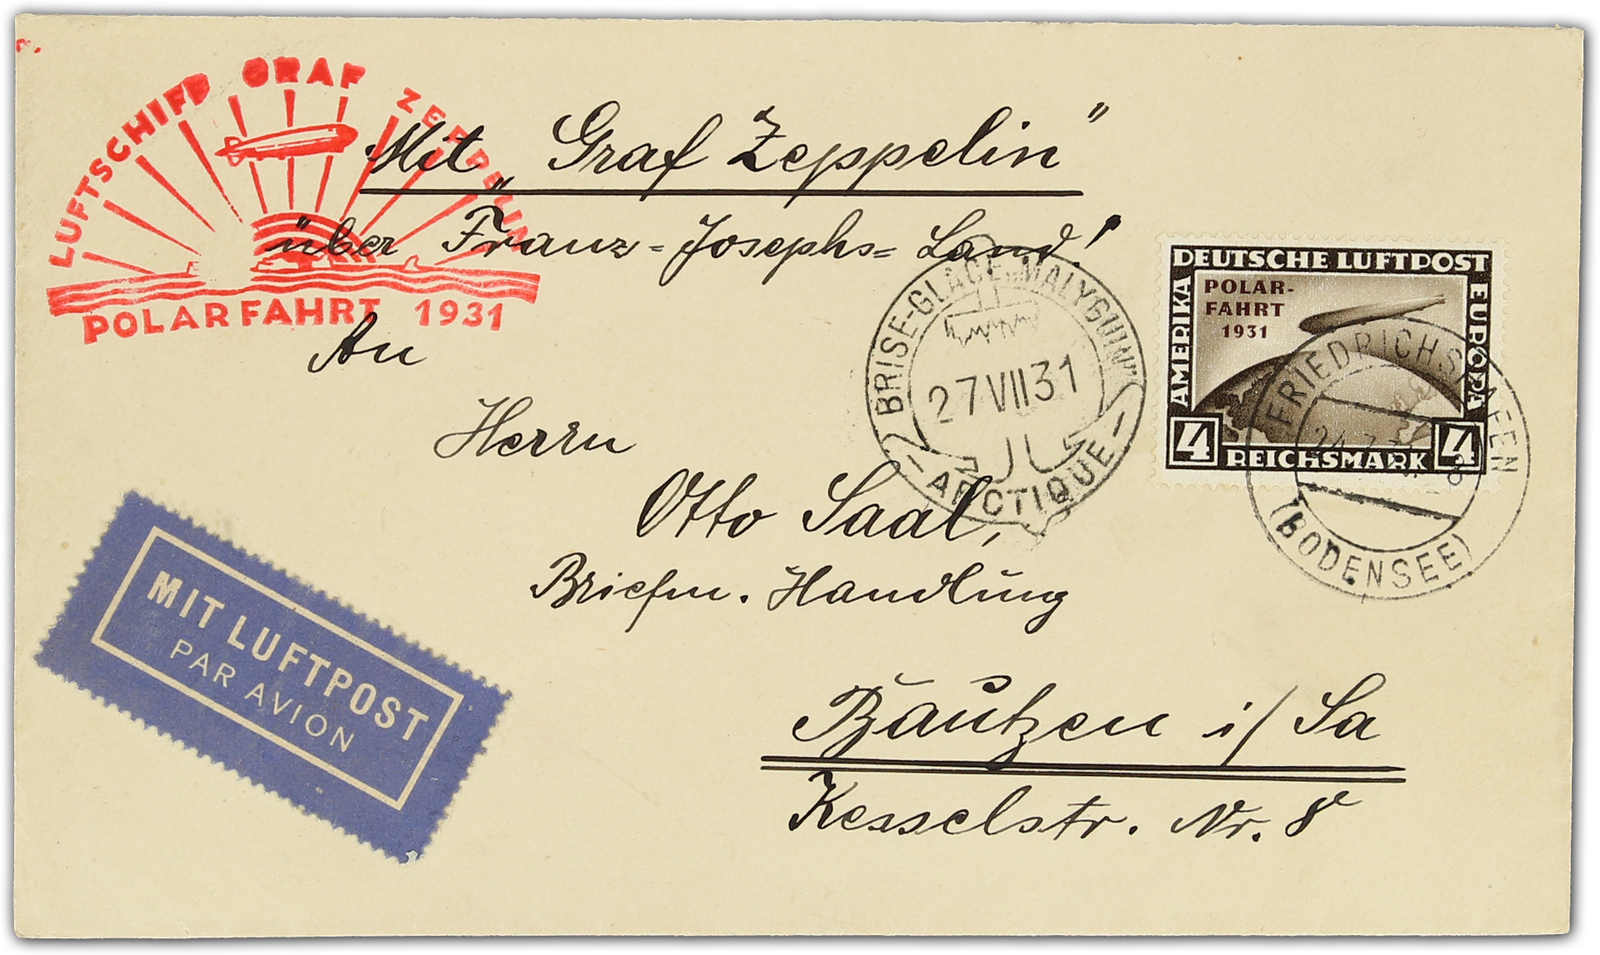 LUFTSCHIFF GRAF ZEPPELIN
POLARFAHRT 1931
Mit „Graf Zeppelin“
über Franz-Josephs-Land!
An
Herrn
Otto Saal,
Briefm. Handlung
Bautzen i/Sa
Kesselstr. Nr. 8
BRISE-GLACE „MALYGUIN"
27 VII 31
- ARCTIQUE -
DEUTSCHE LUFTPOST
AMERIKA
EUROPA
POLAR-
FAHRT
1931
4 REICHSMARK 4
FRIEDRICHSHAFEN
(BODENSEE)
MIT LUFTPOST
PAR AVION